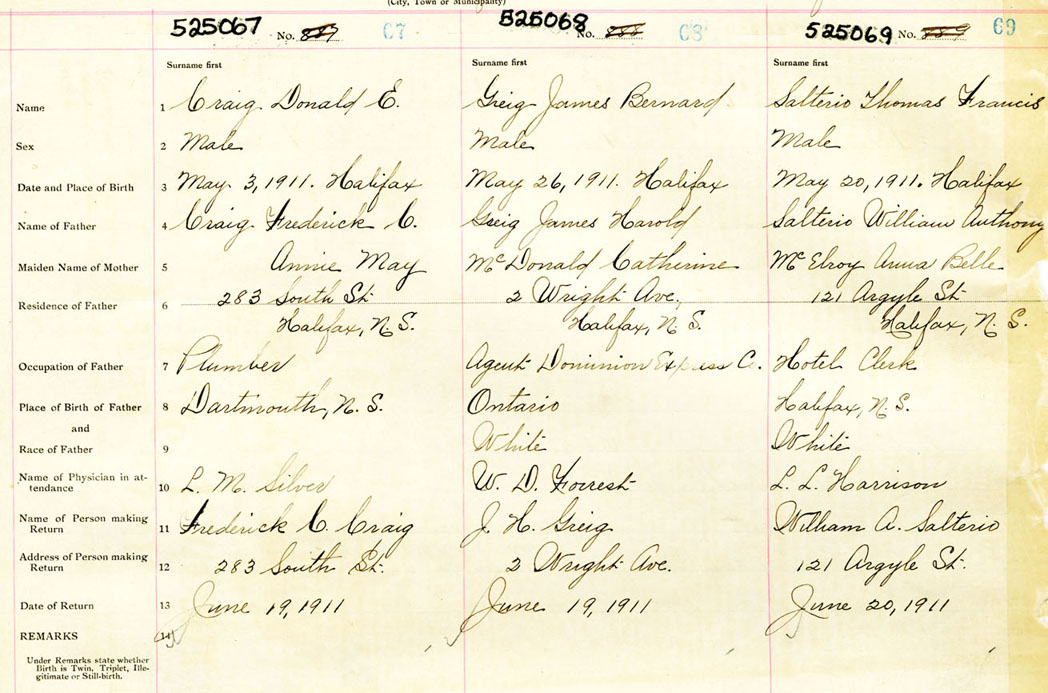 (City, Town or Municipality)
525067 No. 887 67
525068 No. 888 68
525069 No. 889 69
Surname first Surname first Surname first
Name 1 Craig Donald E. Greig James Bernard Salterio Thomas Francis
Sex 2 Male Male Male
Date and Place of Birth 3 May 3, 1911. Halifax May 26, 1911. Halifax May 20, 1911. Halifax
Name of Father 4 Craig Frederick C. Greig James Harold Salterio William Anthony
Maiden Name of Mother 5 Annie May McDonald Catherine McElroy Anna Belle
Residence of Father 6 283 South St 2 Wright Ave. 121 Argyle St
Halifax, N.S. Halifax, N.S. Halifax, N.S.
Occupation of Father 7 Plumber Agent Dominion Express Co. Hotel Clerk
Place of Birth of Father 8 Dartmouth, N.S. Ontario Halifax, N.S.
and
Race of Father 9 White White
Name of Physician in at-
tendance 10 L. M. Silver W. D. Forrest L. L. Harrison
Name of Person making
Return 11 Frederick C. Craig J. H. Greig William A. Salterio
Address of Person making
Return 12 283 South St. 2 Wright Ave. 121 Argyle St.
Date of Return 13 June 19, 1911 June 19, 1911 June 20, 1911
REMARKS 14
Under Remarks state whether
Birth is Twin, Triplet, Ille-
gitimate or Still-birth.